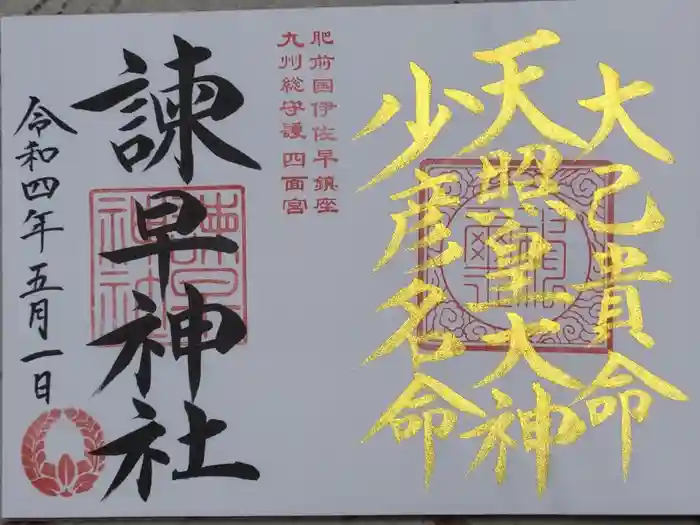 大己貴命
天照皇大神
少彦名命
肥前国伊佐早鎮座
九州総守護 四面宮
諫早神社
令和四年五月一日